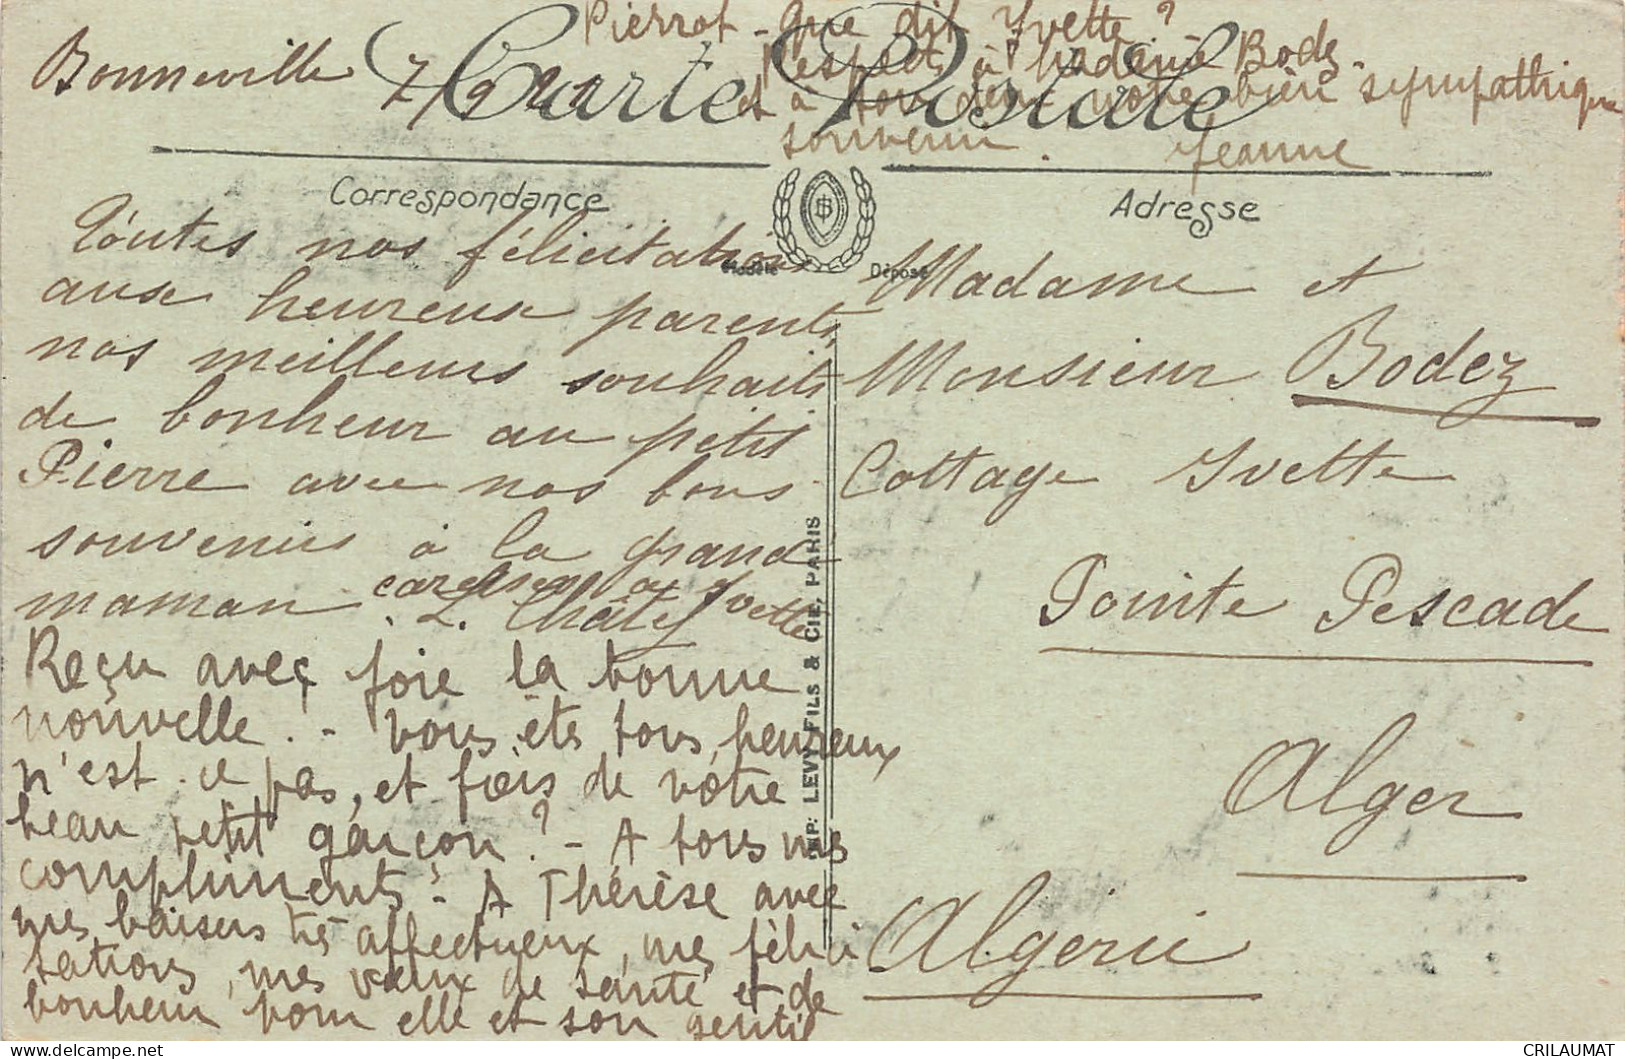 Pierrot - Que dit Yvette ?
Respects à Madame Bodez -
et à tous deux votre bien sympathique
souvenir. Jeanne
Bonneville 7/9
Carte Postale
Correspondance
Adresse
Modèle Déposé
Toutes nos félicitations
aux heureux parents,
nos meilleurs souhaits
de bonheur au petit
Pierre avec nos bons
souvenirs à la grand
maman caresses à Yvette
L. Châtef
Reçu avec joie la bonne
nouvelle ! - Vous êtes tous heureux
n'est-ce pas, et fiers de votre
beau petit garçon ? - A tous mes
compliments - A Thérèse avec
mes baisers très affectueux, mes félici
tations, mes vœux de santé et de
bonheur pour elle et son gentil
IMP: LEVY FILS & CIE, PARIS
Madame et
Monsieur Bodez
Cottage Yvette
Pointe Pescade
Alger
Algérie
CRILAUMAT
www.delcampe.net